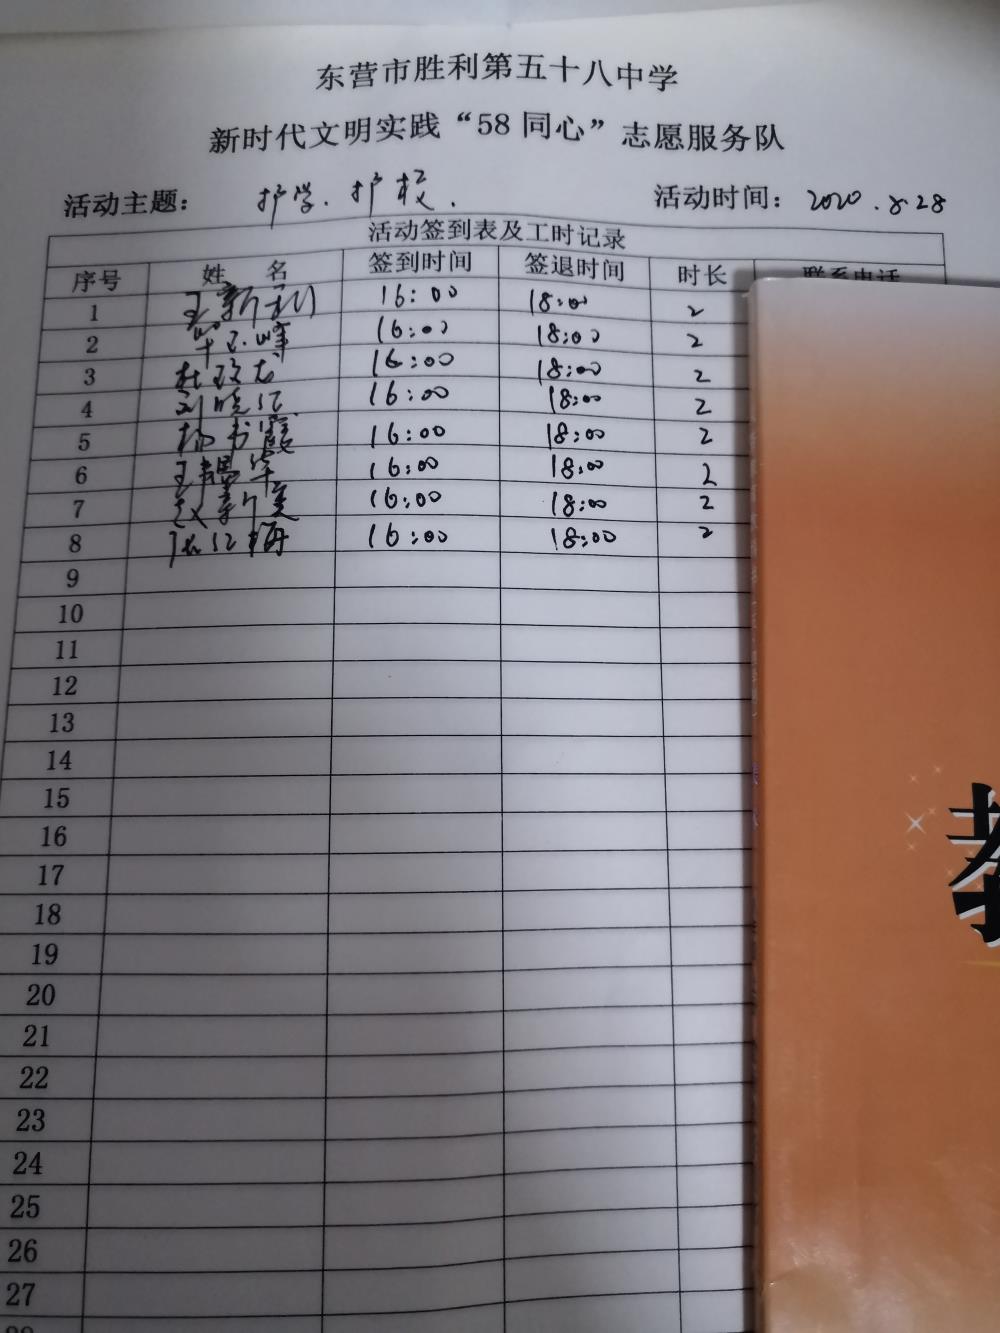 东营市胜利第五十八中学
新时代文明实践“58同心”志愿服务队
活动主题： 护学.护校. 活动时间：2020.8.28
活动签到表及工时记录
序号 姓 名 签到时间 签退时间 时长 联系电话
1 王新利 16:00 18:00 2
2 16:00 18:00 2
3 杜玫龙 16:00 18:00 2
4 刘晓红 16:00 18:00 2
5 杨书霞 16:00 18:00 2
6 王 华 16:00 18:00 2
7 赵新美 16:00 18:00 2
8 张红梅 16:00 18:00 2
9
10
11
12
13
14
15
16
17
18
19
20
21
22
23
24
25
26
27